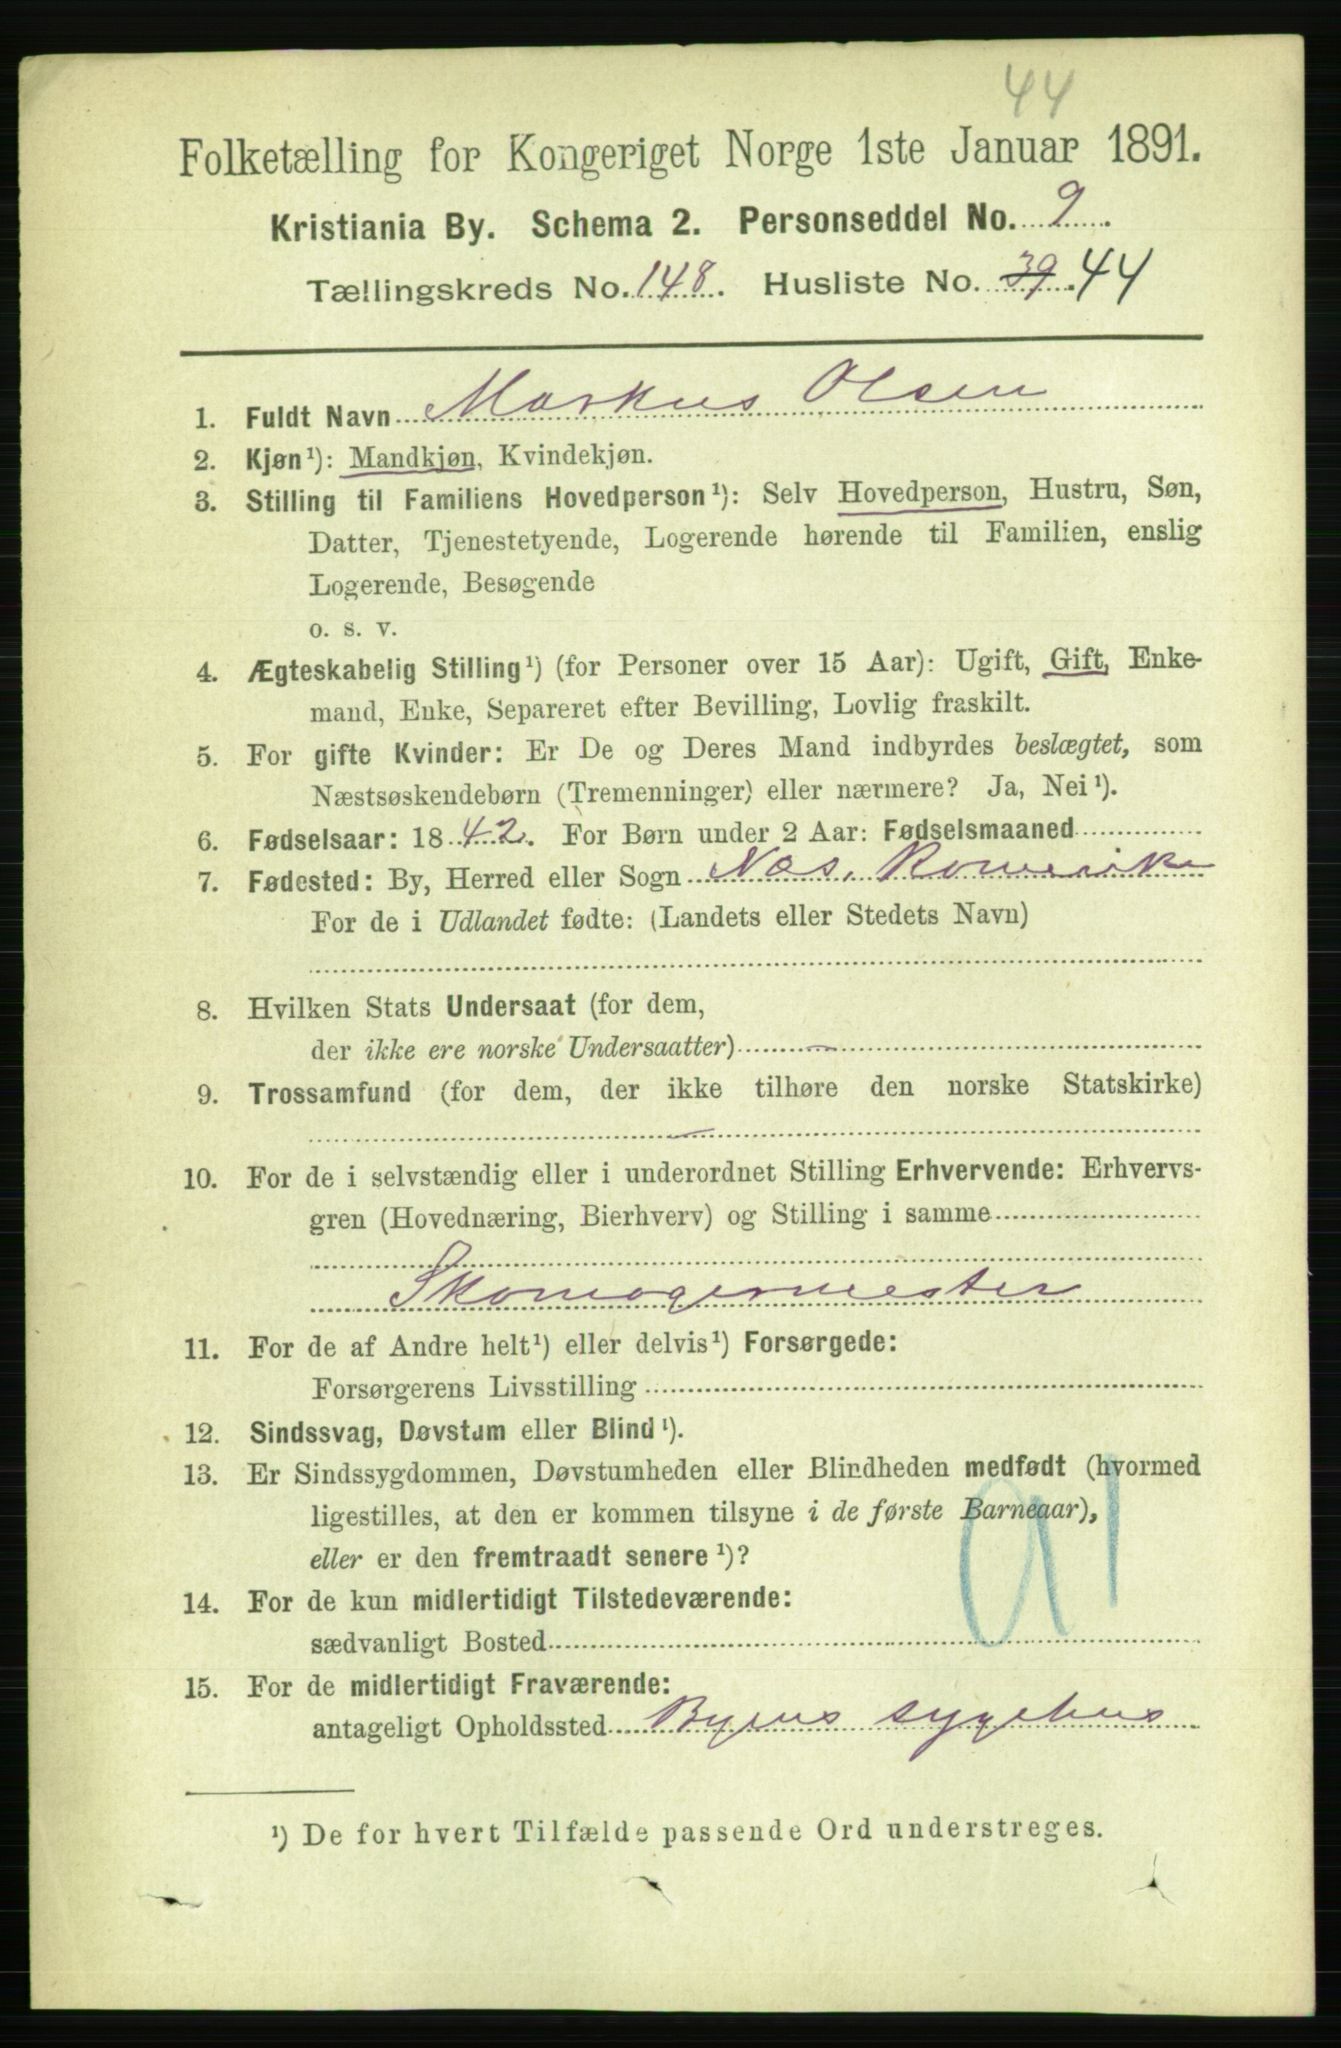 44
Folketælling for Kongeriget Norge 1ste Januar 1891.
Kristiania By. Schema 2. Personseddel No. 9
Tællingskreds No. 148. Husliste No. 39. 44
1. Fuldt Navn Markus Olsen
2. Kjøn¹): Mandkjøn, Kvindekjøn.
3. Stilling til Familiens Hovedperson¹): Selv Hovedperson, Hustru, Søn,
Datter, Tjenestetyende, Logerende hørende til Familien, enslig
Logerende, Besøgende
o. s. v.
4. Ægteskabelig Stilling¹) (for Personer over 15 Aar): Ugift, Gift, Enke-
mand, Enke, Separeret efter Bevilling, Lovlig fraskilt.
5. For gifte Kvinder: Er De og Deres Mand indbyrdes beslægtet, som
Næstsøskendebørn (Tremenninger) eller nærmere? Ja, Nei¹).
6. Fødselsaar: 1842. For Børn under 2 Aar: Fødselsmaaned
7. Fødested: By, Herred eller Sogn Næs, Romerike
For de i Udlandet fødte: (Landets eller Stedets Navn)
8. Hvilken Stats Undersaat (for dem,
der ikke ere norske Undersaatter) —
9. Trossamfund (for dem, der ikke tilhøre den norske Statskirke)
—
10. For de i selvstændig eller i underordnet Stilling Erhvervende: Erhvervs-
gren (Hovednæring, Bierhverv) og Stilling i samme
Skomagermester
11. For de af Andre helt¹) eller delvis¹) Forsørgede:
Forsørgerens Livsstilling
12. Sindssvag, Døvstum eller Blind¹).
13. Er Sindssygdommen, Døvstumheden eller Blindheden medfødt (hvormed
ligestilles, at den er kommen tilsyne i de første Barneaar),
eller er den fremtraadt senere¹)?
14. For de kun midlertidigt Tilstedeværende:
sædvanligt Bosted
15. For de midlertidigt Fraværende:
antageligt Opholdssted Byens sygehus
¹) De for hvert Tilfælde passende Ord understreges.